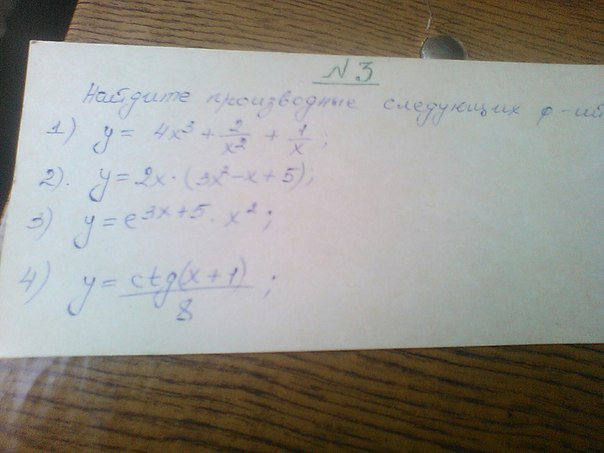 N3
Найдите производные следующих ф-ий
1) y = 4x³ + 2/x² + 1/x;
2). y = 2x · (3x² - x + 5);
3) y = e^(3x+5) · x²;
4) y = ctg(x+1)/8;